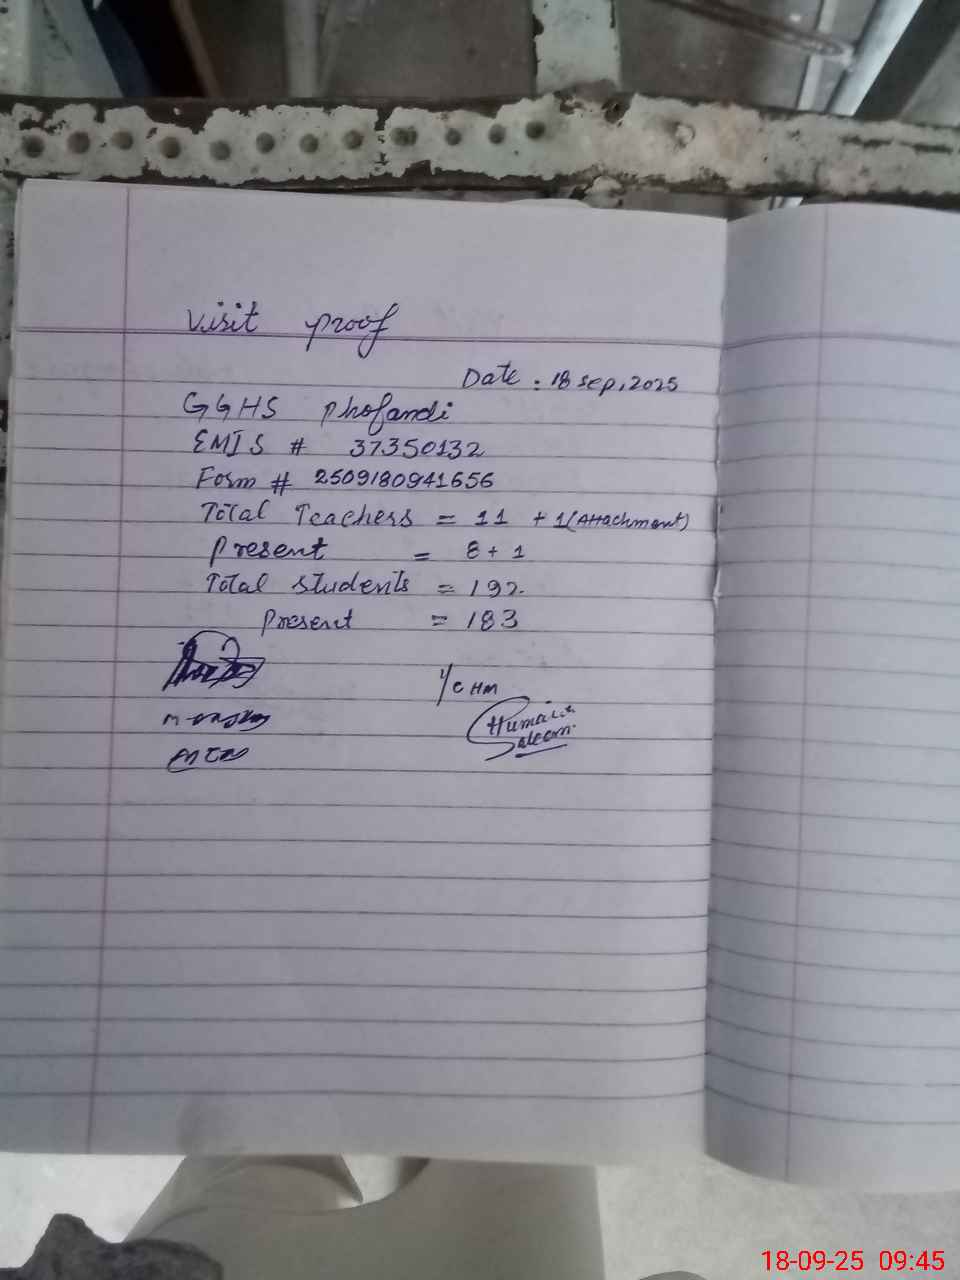 Visit proof
Date : 18 Sep, 2025
GGHS Phofandi
EMIS # 37350132
Form # 2509180941656
Total Teachers = 11 + 1(Attachment)
Present = 8 + 1
Total students = 192
Present = 183
I/C HM
Humaira
Saleem
18-09-25 09:45